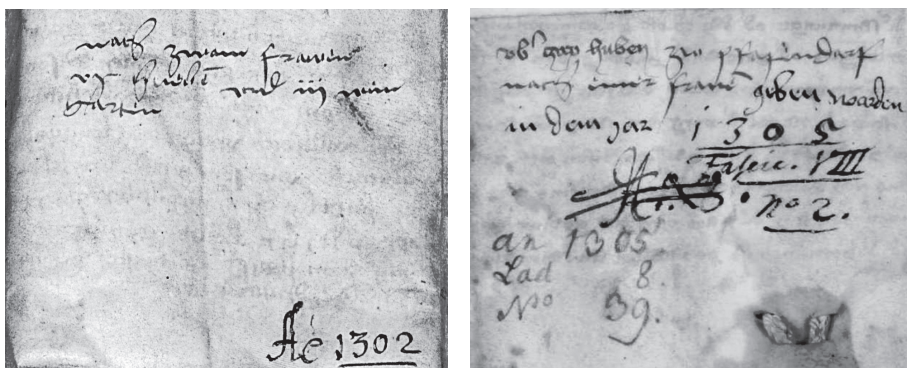 nach zwain frawen
vi hueben vnd iij wein
garten
Aẽ 1302
vbˀ zway huben zu pfafendorf
nach einer frawen geben warden
in dem jar 1305
Fascic. VIII
Nº 2.
an 1305
Lad 8.
Nº 39.